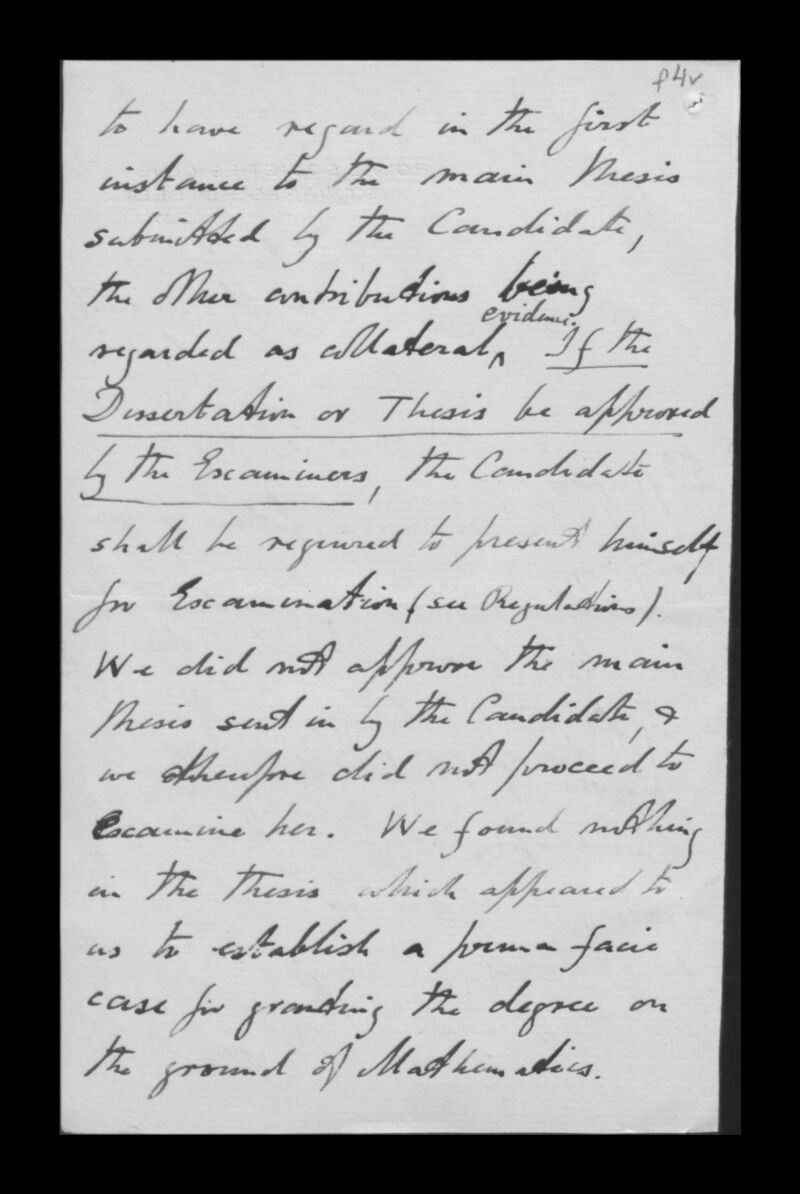 p4v
to have regard in the first
instance to the main thesis
submitted by the Candidate,
the other contributions being
evidence.
regarded as collateral‸ If the
Dissertation or Thesis be approved
by the Examiners, the Candidate
shall be required to present himself
for Examination (see Regulations).
We did not approve the main
thesis sent in by the Candidate, &
we therefore did not proceed to
Examine her. We found nothing
in the thesis which appeared to
us to establish a prima facie
case for granting the degree on
the ground of Mathematics.